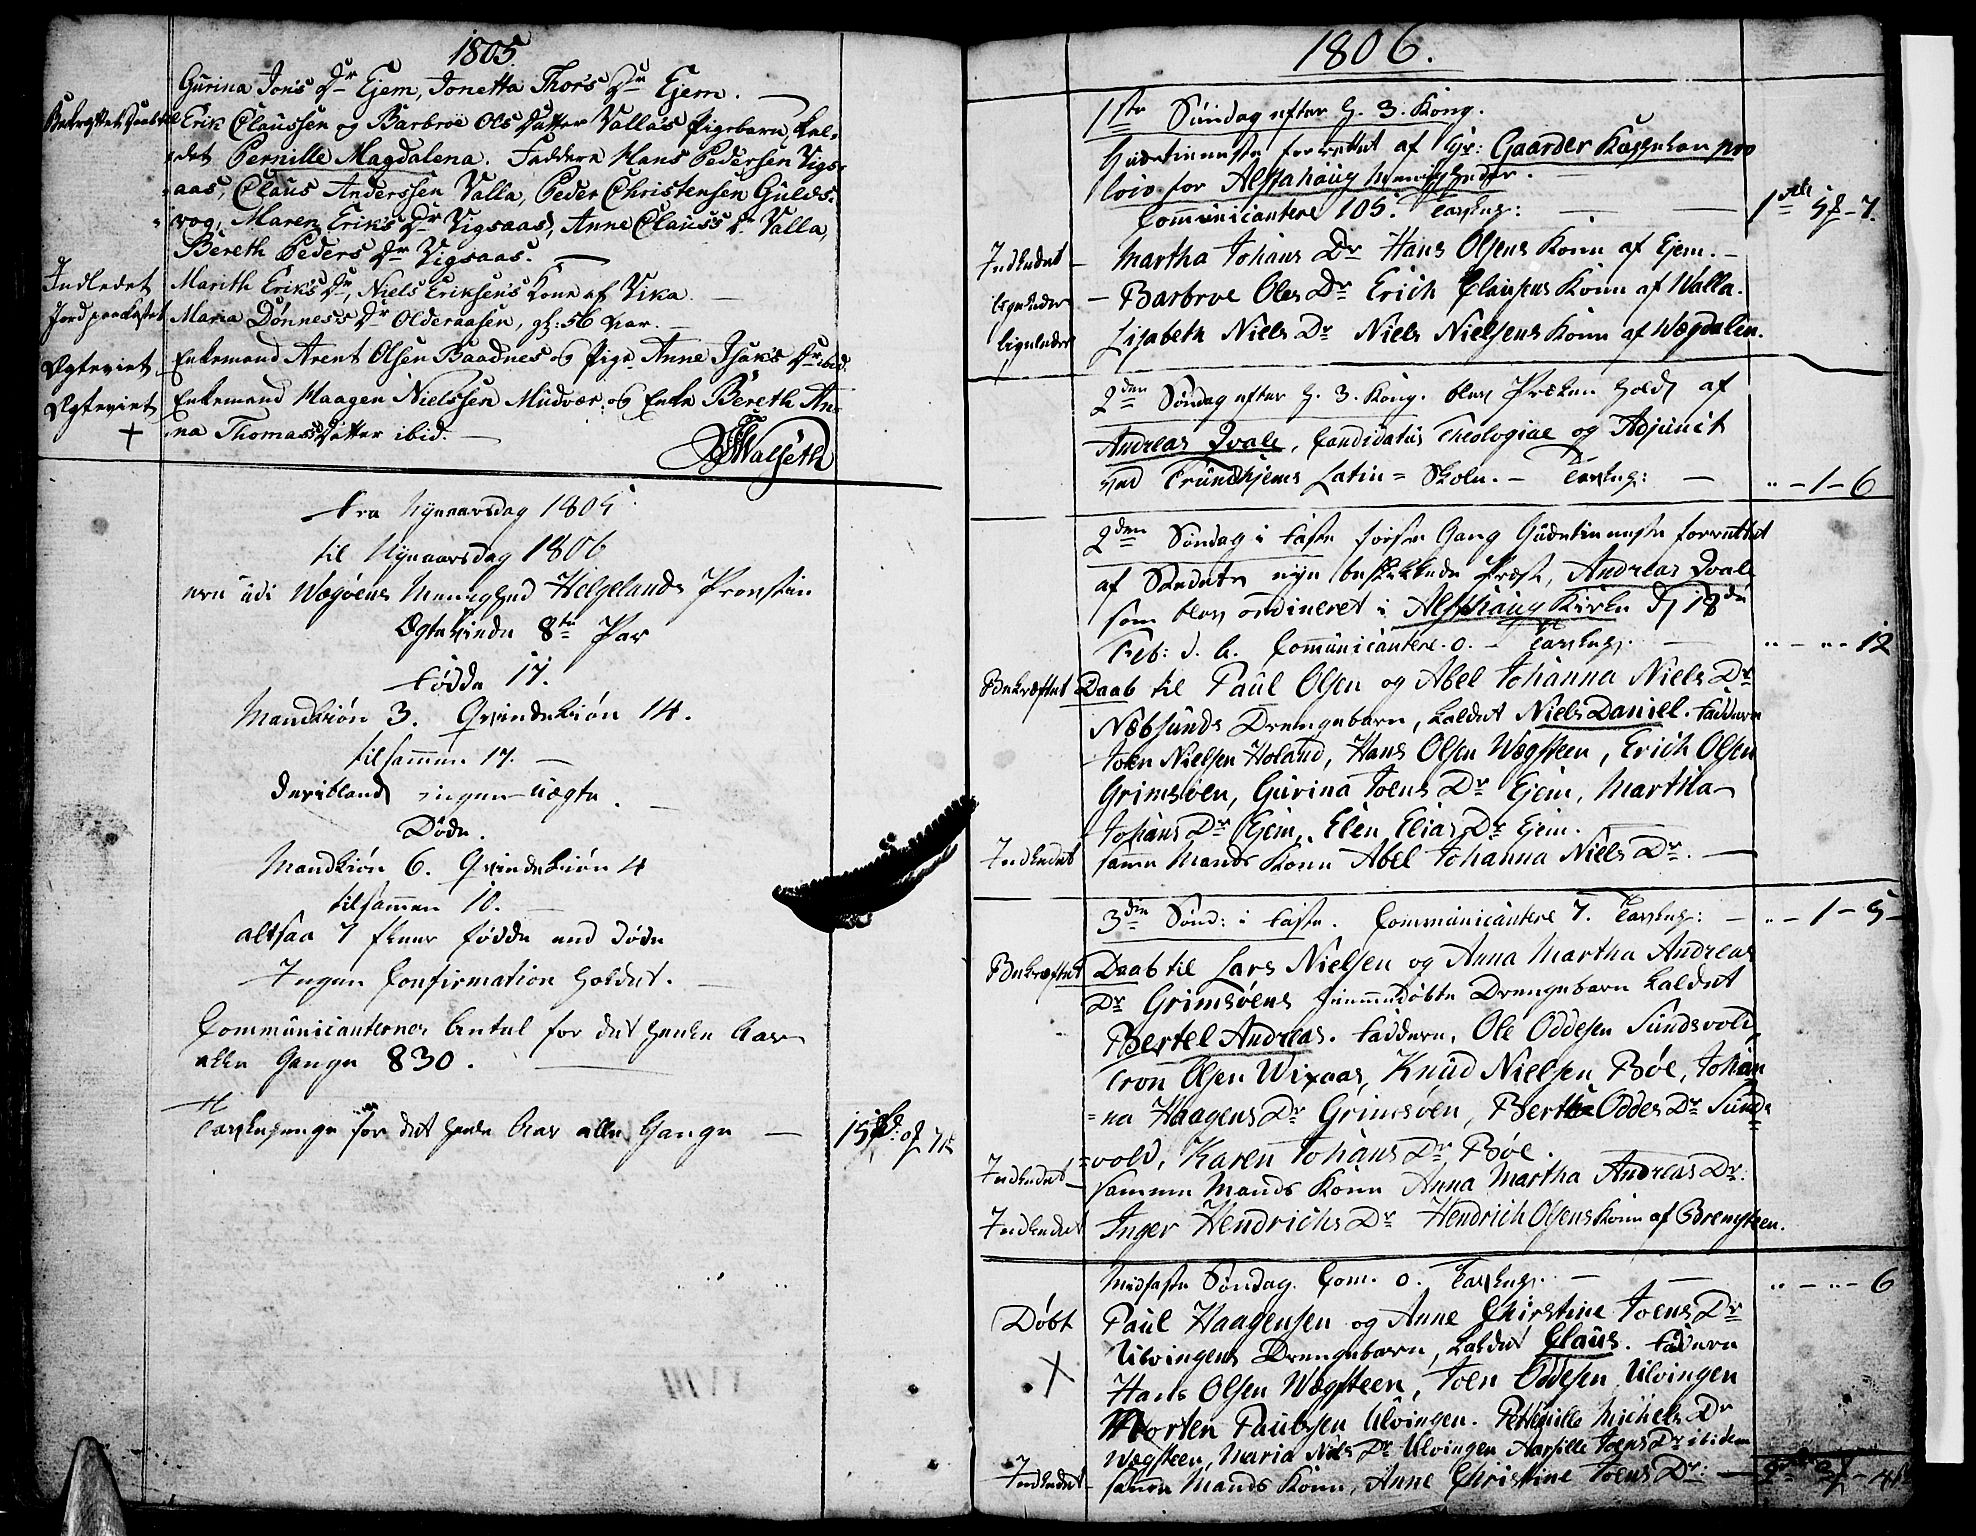 1805.
Gurina Jons Dr Ejem, Jonetta Thors Dr Ejem.
Bekræftet Daab til Erik Claussen og Barbroe Ols Datter Valla's Pigebarn kal-
det Pernille Magdalena. Faddere Hans Pedersen Vigs-
aas, Claus Anderssen Valla, Peder Christensen Gulds-
vog, Maren Eriks Dr Vigsaas, Anne Clauss Dr Valla,
Bereth Peders Dr Vigsaas.
Indledet Marith Eriks Dr, Niels Eriksen's Kone af Vika
Jordpaakastet Maria Dønness Dr Olderaasen, gl: 56 Aar.
Ægteviet Enkemand Arent Olsen Baadnes og Pige Anne Isaks Dr ibid.
Ægteviet Enkemand Haagen Nielssen Mudvær og Enke Bereth An-
+ na Thomas Datter ibid.
Walseth
Fra Nyeaarsdag 1805
til Nyeaarsdag 1806
ere udi Wegøens Menighed Helgelands Provstie
Ægteviede 8te Par
Fødde 17.
Mandkiøn 3. Qvindekiøn 14.
tilsammen 17.
deriblandt ingen uægte.
Døde.
Mandkiøn 6. Qvindekiøn 4
tilsammen 10.
altsaa 7 flere fødde end døde
Ingen Confirmation holdet.
Communicanternes Antal for det heele Aar
alle Gange 830.
Tavlepenge for det heele Aar alle Gange
1806.
1ste Søndag efter H. 3. Kong.
Gudstienneste forrettet af Hr: Gaarder Kappelan pro
loco for Alstahaug Menigheder.
Communicantere 105. Tavlepg: 1 5 - 7.
Indledet - Martha Johans Dr Hans Olsens Kone af Ejem.
ligeleder - Barbroe Oles Dr Erich Clausens Kone af Walla.
ligeleder Lisabeth Niels Dr Niels Nielsens Kone af Wægdalen.
2den Søndag efter H. 3. Kong. blev Præken holdt af
Andreas Qvale, Candidatus Theologiae og Adjunct
ved Trundhjems Latin = Skole. - Tavlepg: - " - 1 - 6
2den Søndag i Faste første Gang Gudstienneste forrettet
af Stedets nye beskikkede Præst, Andreas Qvale
som blev ordineret i Alstahaug Kirke d 18de
Feb: d. A. Communicantere. 0. - Tavlepg. " - " - 12
Bekræftet Daab til Paul Olsen og Abel Johanna Niels Dr
Næbsunds Drengebarn, kaldet Niels Daniel. Faddere
Joen Nielsen Holand, Hans Olsen Wægsteen, Erich Olsen
Grimsøen, Gurina Joens Dr Ejem, Martha
Johans Dr Ejem, Elen Elias Dr Ejem.
Indledet samme Mands Kone Abel Johanna Niels Dr.
3die Sønd: i Faste. Communicantere 7. Tavlepg: - " - 1 - 5 -
Bekræftet Daab til Lars Nielsen og Anna Martha Andreas
Dr Grimsøens hiemmedøbte Drengebarn kaldet
Bertel Andreas. Faddere, Ole Oddesen Sundsvold,
Tron Olsen Wixaas, Knud Nielsen Bøe, Johan
= na Haagens Dr Grimsøen, Bertha Oddes Dr Sunds
= vold, Karen Johans Dr Bøe.
Indledet samme Mands Kone Anna Martha Andreas Dr.
Indledet Inger Hendrichs Dr Hendrich Olsens Kone af Bremsteen.
Midfaste Søndag. Com. 0. Tavlepg. - " - " - 6
Døbt Paul Haagensen og Anne Christine Joens Dr
Ulvingens Drengebarn, kaldet Claus. Faddere
Hans Olsen Wægsteen, Joen Oddesen Ulvingen
Morten Paulsen Ulvingen. Pettenille Michels Dr
Wægsteen, Maria Niels Dr Ulvingen Aarsille Joens Dr ibidem
Indledet - samme Mands Kone, Anne Christine Joens Dr: